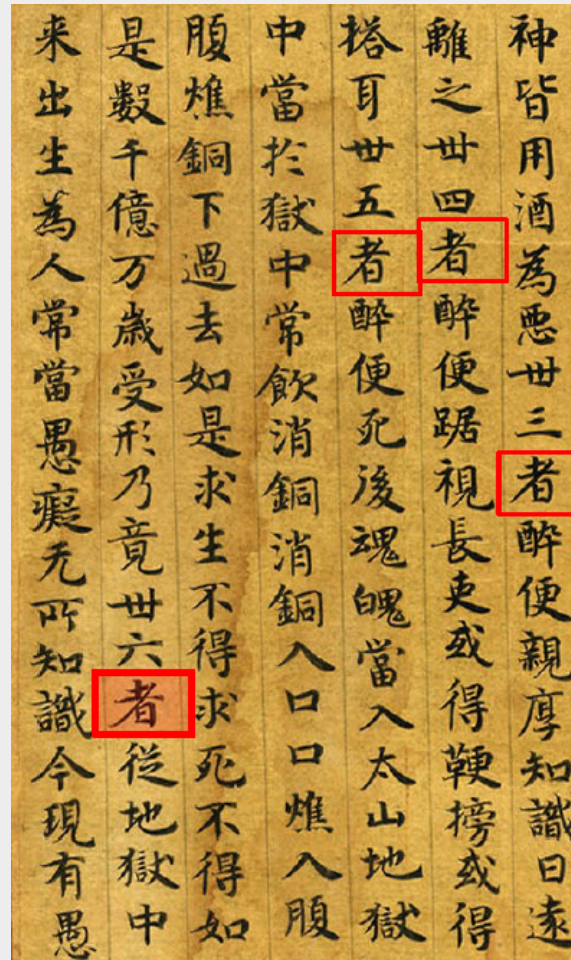 神皆用酒為悪丗三者醉便親厚知識日遠
離之丗四者醉便踞視長吏或得鞕搒或得
搭耳丗五者醉便死後魂魄當入太山地獄
中當扵獄中常飲消銅消銅入口口燋入腹
腹燋銅下過去如是求生不得求死不得如
是數千億万歳受形乃竟丗六者從地獄中
来出生為人常當愚癡无所知識今現有愚